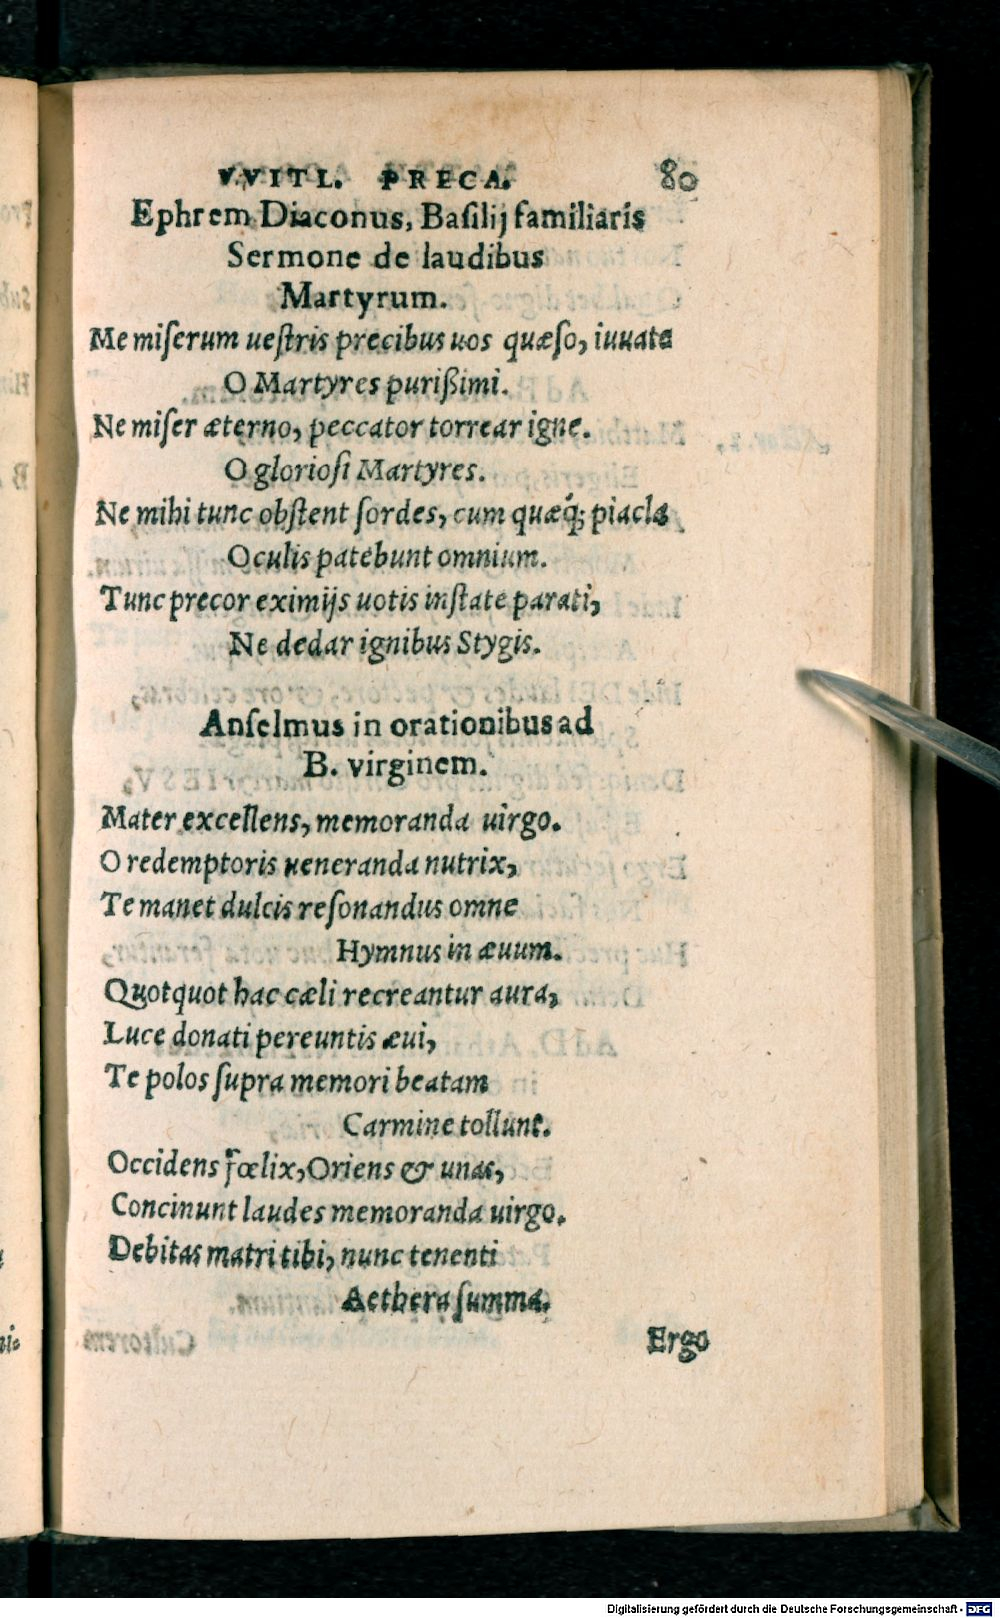 VVITL. PRECA. 80
Ephrem Diaconus, Baſilij familiaris
Sermone de laudibus
Martyrum.
Me miſerum ueſtris precibus uos quæſo, iuuate
O Martyres purißimi.
Ne miſer æterno, peccator torrear igne.
O glorioſi Martyres.
Ne mihi tunc obſtent ſordes, cum quæq́; piacla
Oculis patebunt omnium.
Tunc precor eximijs uotis inſtate parati,
Ne dedar ignibus Stygis.
Anſelmus in orationibus ad
B. virginem.
Mater excellens, memoranda uirgo.
O redemptoris ueneranda nutrix,
Te manet dulcis reſonandus omne
Hymnus in æuum.
Quotquot hac cæli recreantur aura,
Luce donati pereuntis æui,
Te polos ſupra memori beatam
Carmine tollunt.
Occidens fœlix, Oriens & unas,
Concinunt laudes memoranda uirgo.
Debitas matri tibi, nunc tenenti
Aethera ſumma.
Ergo
Digitalisierung gefördert durch die Deutsche Forschungsgemeinschaft - DFG